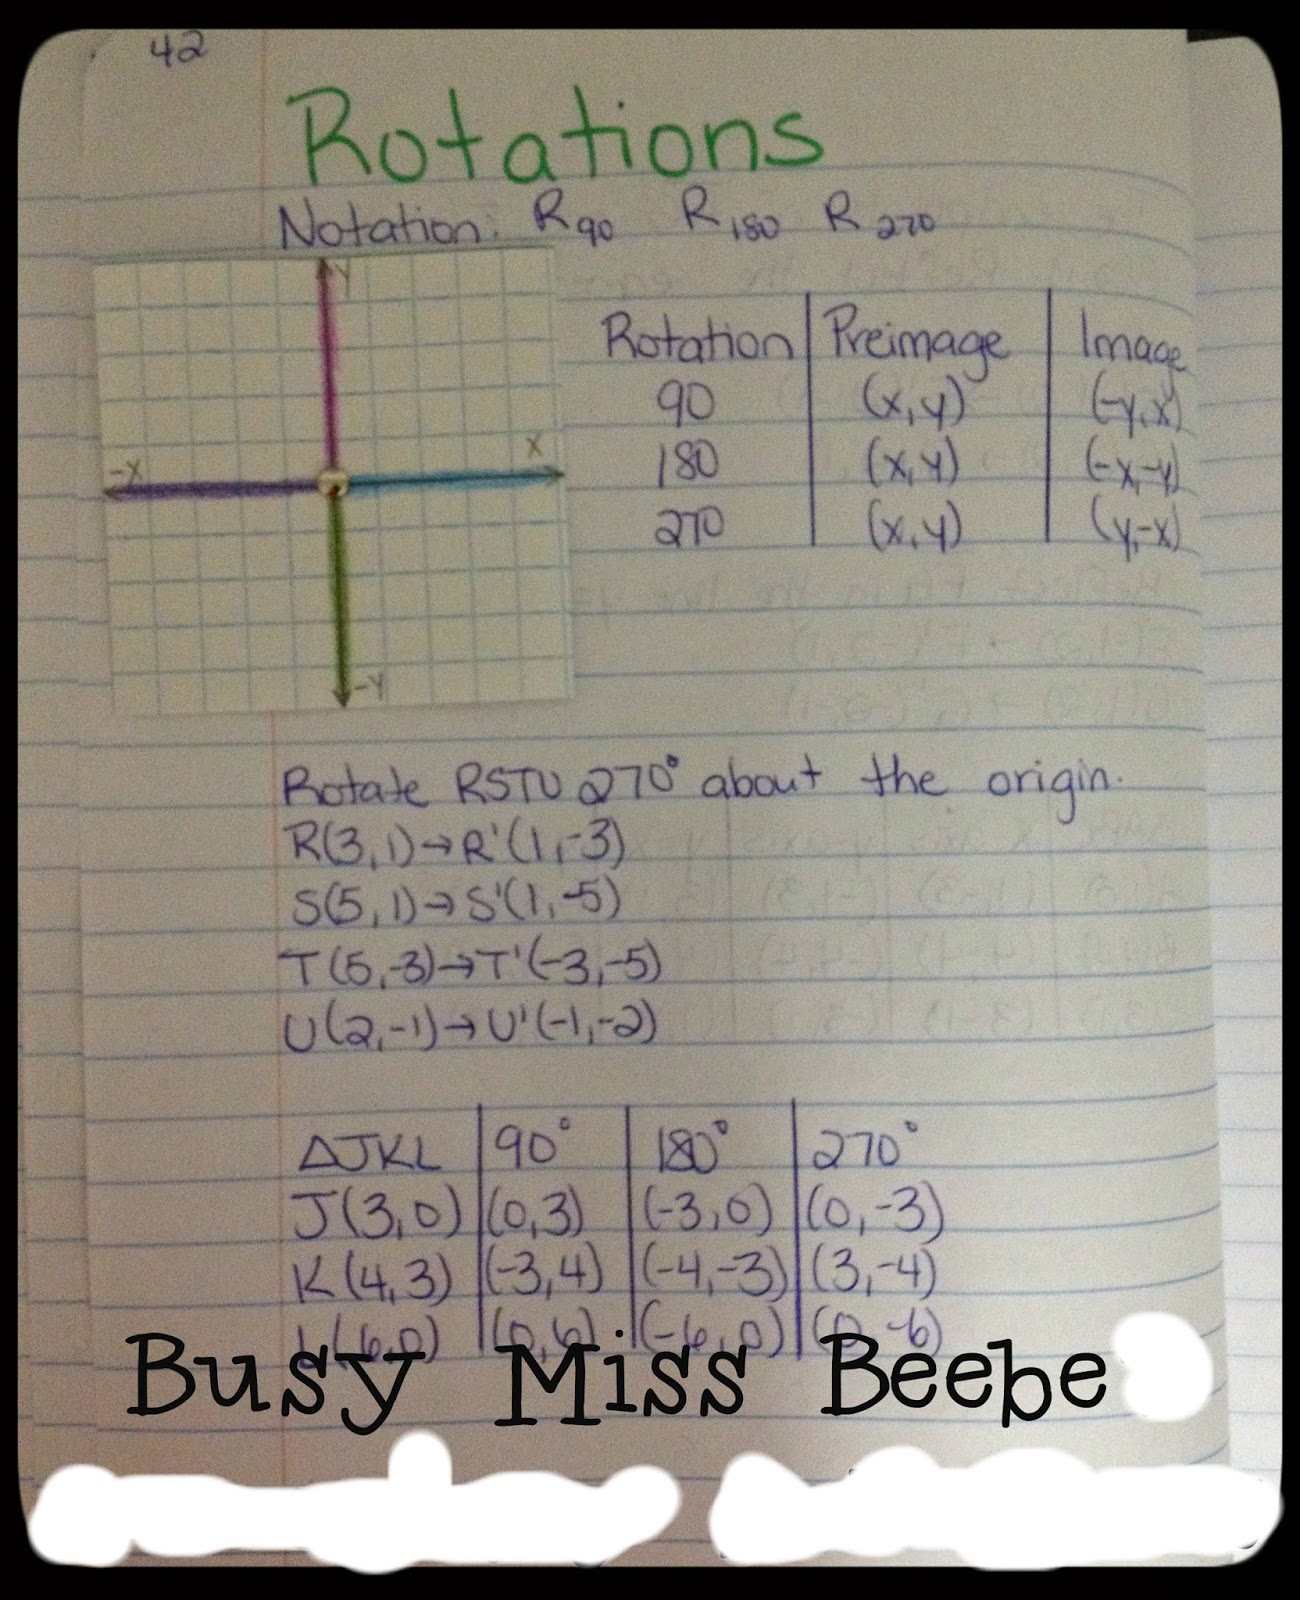 42
Rotations
Notation: R90 R180 R270
Y
X
-X
-Y
Rotation Preimage Image
90 (x,y) (-y,x)
180 (x,y) (-x,-y)
270 (x,y) (y,-x)
Rotate RSTU 270° about the origin.
R(3,1)→R'(1,-3)
S(5,1)→S'(1,-5)
T(5,-3)→T'(-3,-5)
U(2,-1)→U'(-1,-2)
ΔJKL 90° 180° 270°
J(3,0) (0,3) (-3,0) (0,-3)
K(4,3) (-3,4) (-4,-3) (3,-4)
L(6,0) (0,6) (-6,0) (0,-6)
Busy Miss Beebe